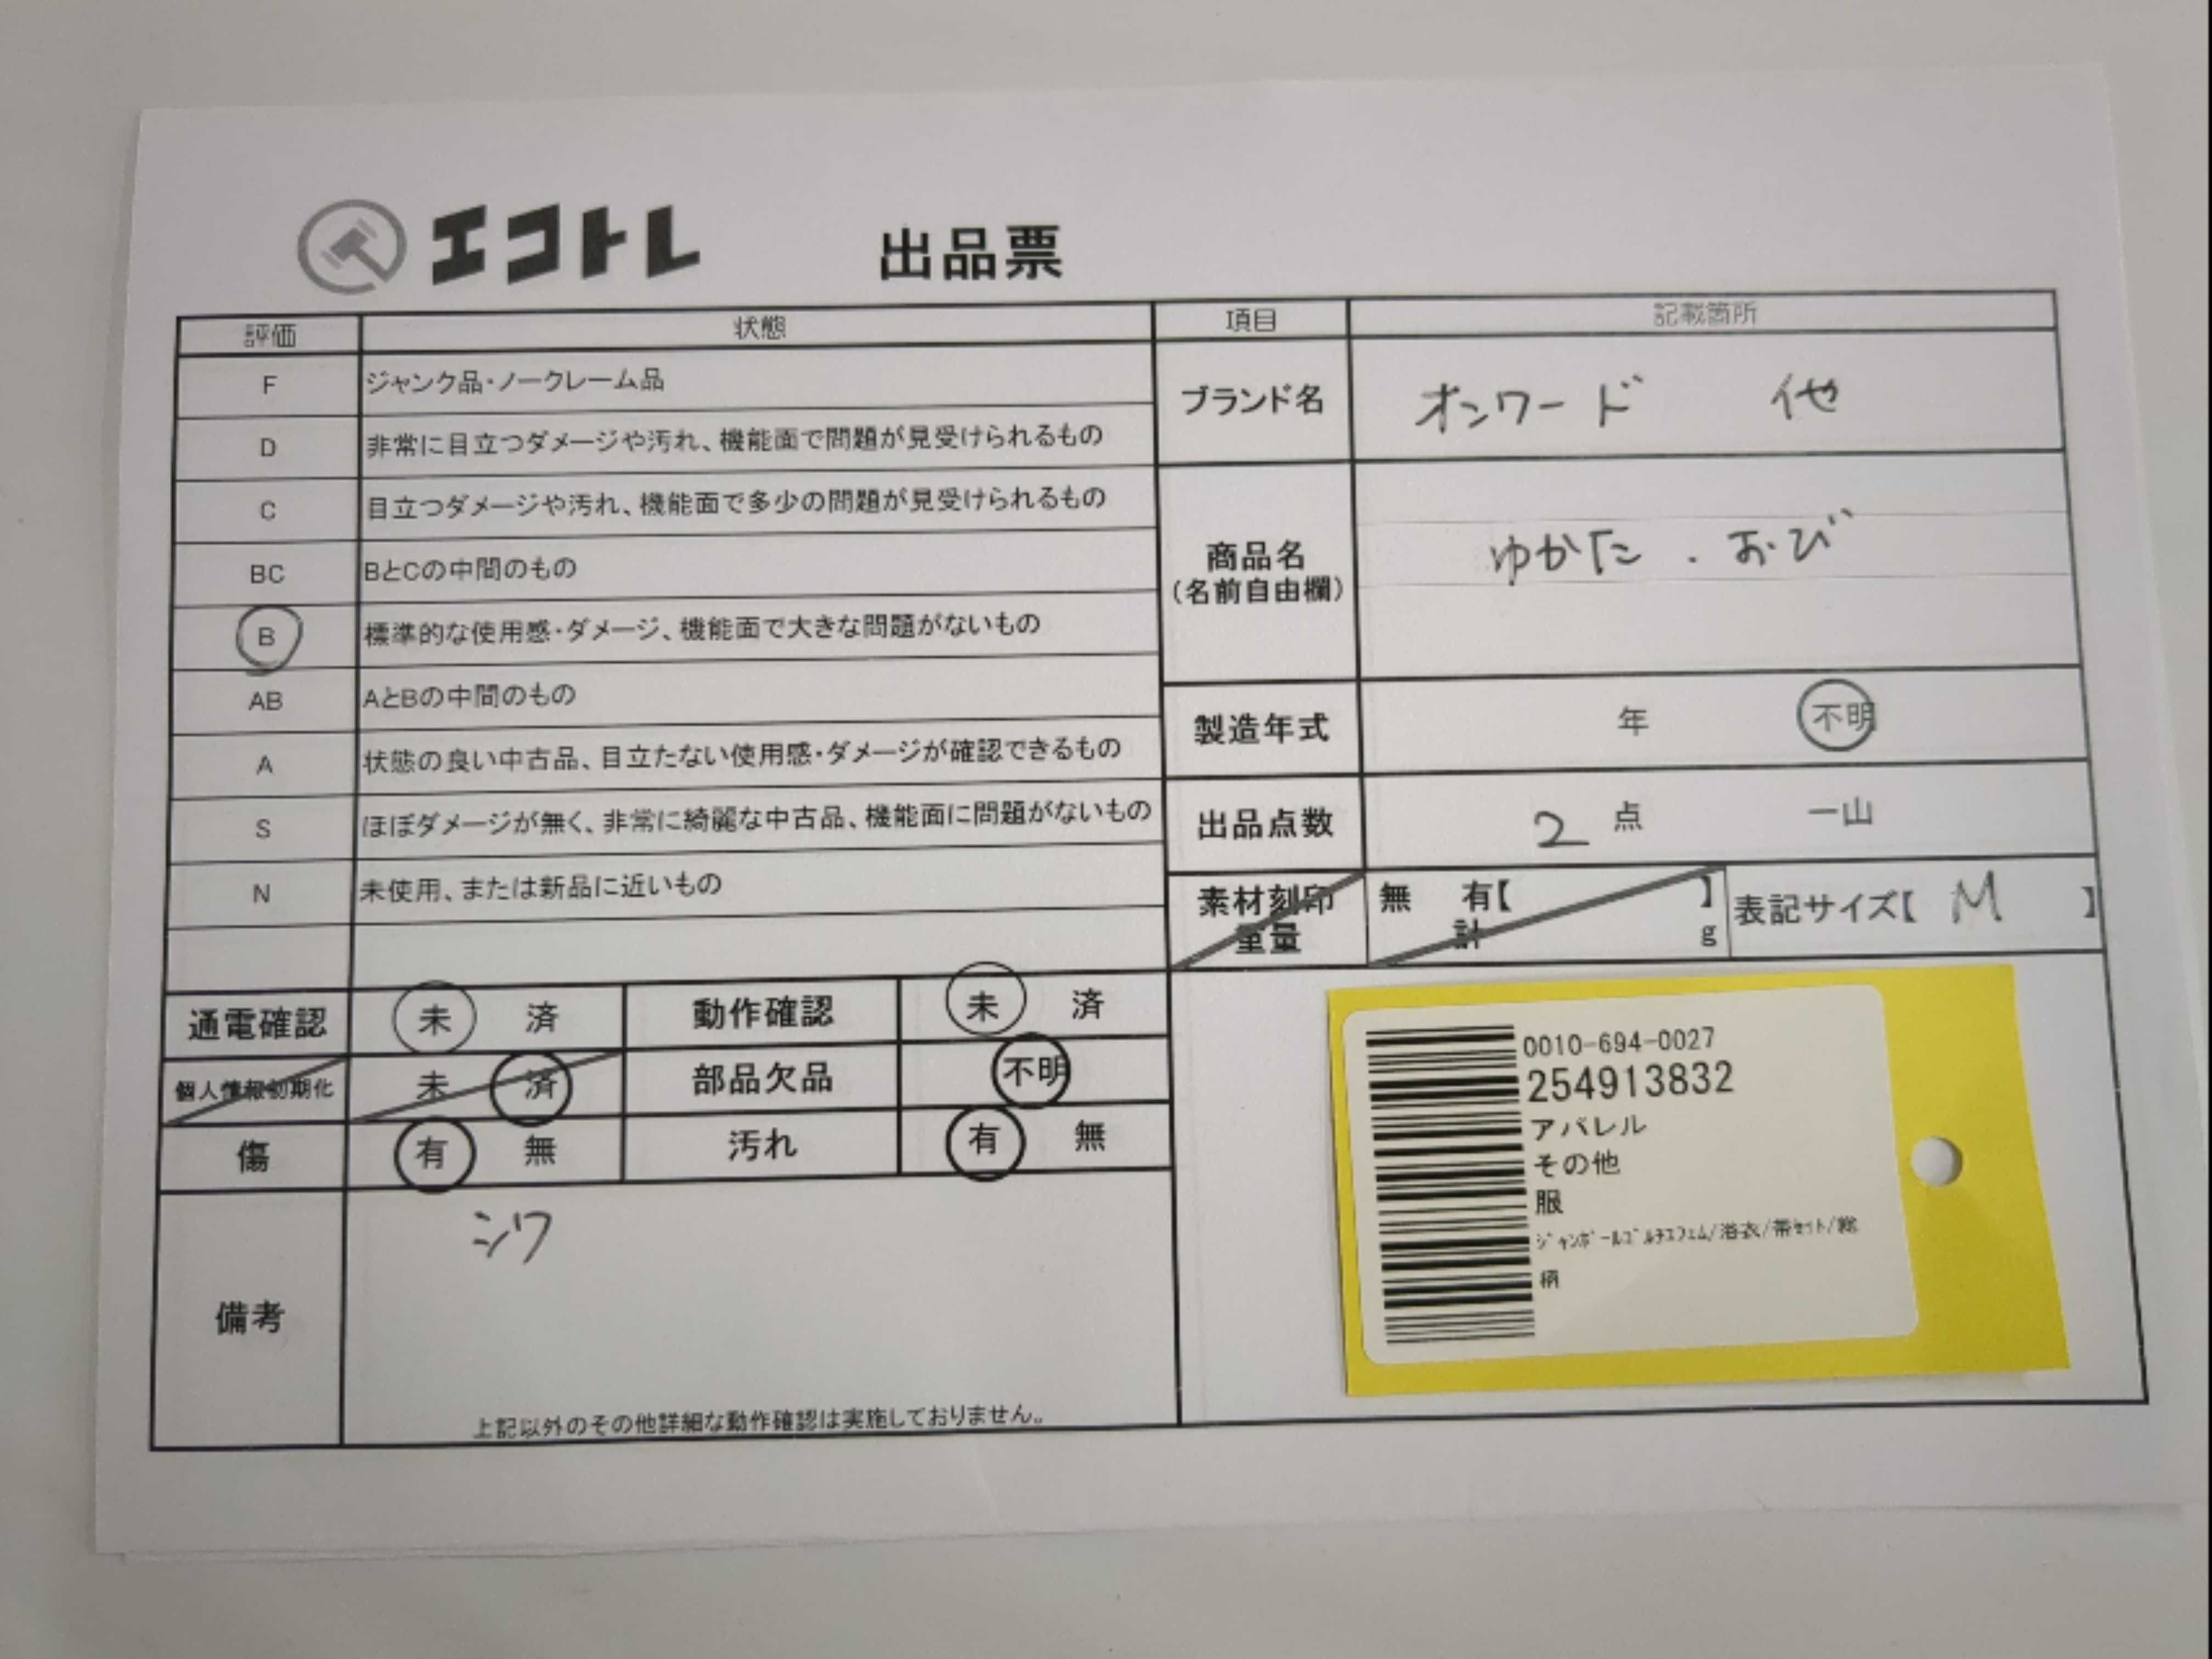 エコトレ 出品票
評価 状態
F ジャンク品・ノークレーム品
D 非常に目立つダメージや汚れ、機能面で問題が見受けられるもの
C 目立つダメージや汚れ、機能面で多少の問題が見受けられるもの
BC BとCの中間のもの
B 標準的な使用感・ダメージ、機能面で大きな問題がないもの
AB AとBの中間のもの
A 状態の良い中古品、目立たない使用感・ダメージが確認できるもの
S ほぼダメージが無く、非常に綺麗な中古品、機能面に問題がないもの
N 未使用、または新品に近いもの
通電確認 未 済 動作確認 未 済
個人情報初期化 未 済 部品欠品 不明
傷 有 無 汚れ 有 無
備考 シワ
上記以外のその他詳細な動作確認は実施しておりません。
項目 記載箇所
ブランド名 オンワード 他
商品名
(名前自由欄)
ゆかた . おび
製造年式 年 不明
出品点数 2 点 一山
素材刻印 無 有【 】
重量 計 g
表記サイズ【 M 】
0010-694-0027
254913832
アパレル
その他
服
ジャンポールゴルチエフェム/浴衣/帯セット/総
柄